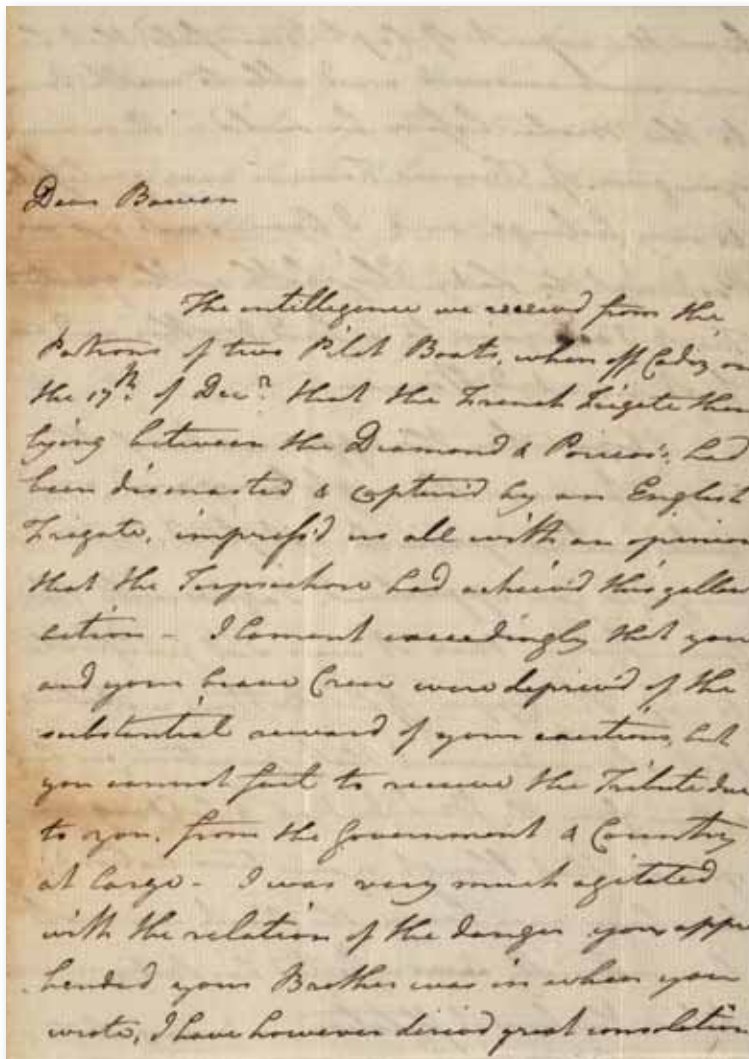 Dear Bowen
The intellegence we received from the
Patrons of two Pilot Boats, when off Cadiz on
the 17th of Decr that the French Frigate then
lying between the Diamond &
been dismasted & captur'd by an English
Frigate, impress'd us all with an opinion
that the Terpsichore had achiev'd this gallan
action - I lament exceedingly that you
and your brave Crew were depriv'd of the
substantial reward of your exertions, but
you cannot fail to receive the Tribute due
to you, from the Government & Country
at large - I was very much agitated
with the relation of the danger you appre
hended your Brother was in when you
wrote, I have however deriv'd great consolation